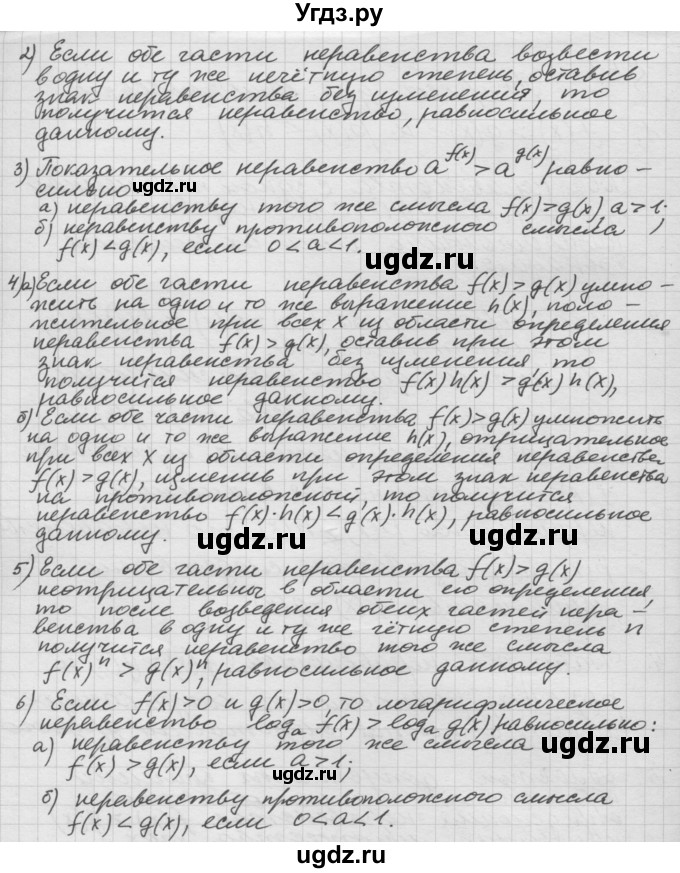 Угдз.ру
2) Если обе части неравенства возвести
в одну и ту же нечётную степень, оставив
знак неравенства без изменения, то
получится неравенство, равносильное
данному.
3) Показательное неравенство a^f(x) > a^g(x) равно-
сильно
ugdz.ru
а) неравенству того же смысла f(x)>g(x), a>1;
б) неравенству противоположного смысла
f(x)<g(x), если 0<a<1.
ugdz.ru
4)а) Если обе части неравенства f(x)>g(x) умно-
жить на одно и то же выражение h(x), поло-
жительное при всех x из области определения
неравенства f(x)>g(x), оставив при этом
знак неравенства без изменения, то
получится неравенство f(x)h(x)>g(x)h(x),
равносильное данному.
ugdz.ru
б) Если обе части неравенства f(x)>g(x) умножить
на одно и то же выражение h(x), отрицательное
при всех x из области определения неравенства
f(x)>g(x), изменив при этом знак неравенства
на противоположный, то получится
неравенство f(x)·h(x)<g(x)·h(x), равносильное
данному.
ugdz.ru ugdz.ru
5) Если обе части неравенства f(x)>g(x)
неотрицательны в области его определения,
то после возведения обеих частей нера-
венства в одну и ту же чётную степень n
получится неравенство того же смысла
f(x)^n > g(x)^n, равносильное данному.
6) Если f(x)>0 и g(x)>0, то логарифмическое
неравенство log_a f(x)>log_a g(x) равносильно:
а) неравенству того же смысла
ugdz.ru
f(x)>g(x), если a>1;
ugdz.ru
б) неравенству противоположного смысла
f(x)<g(x), если 0<a<1.
ugdz.ru
ugdz.ru